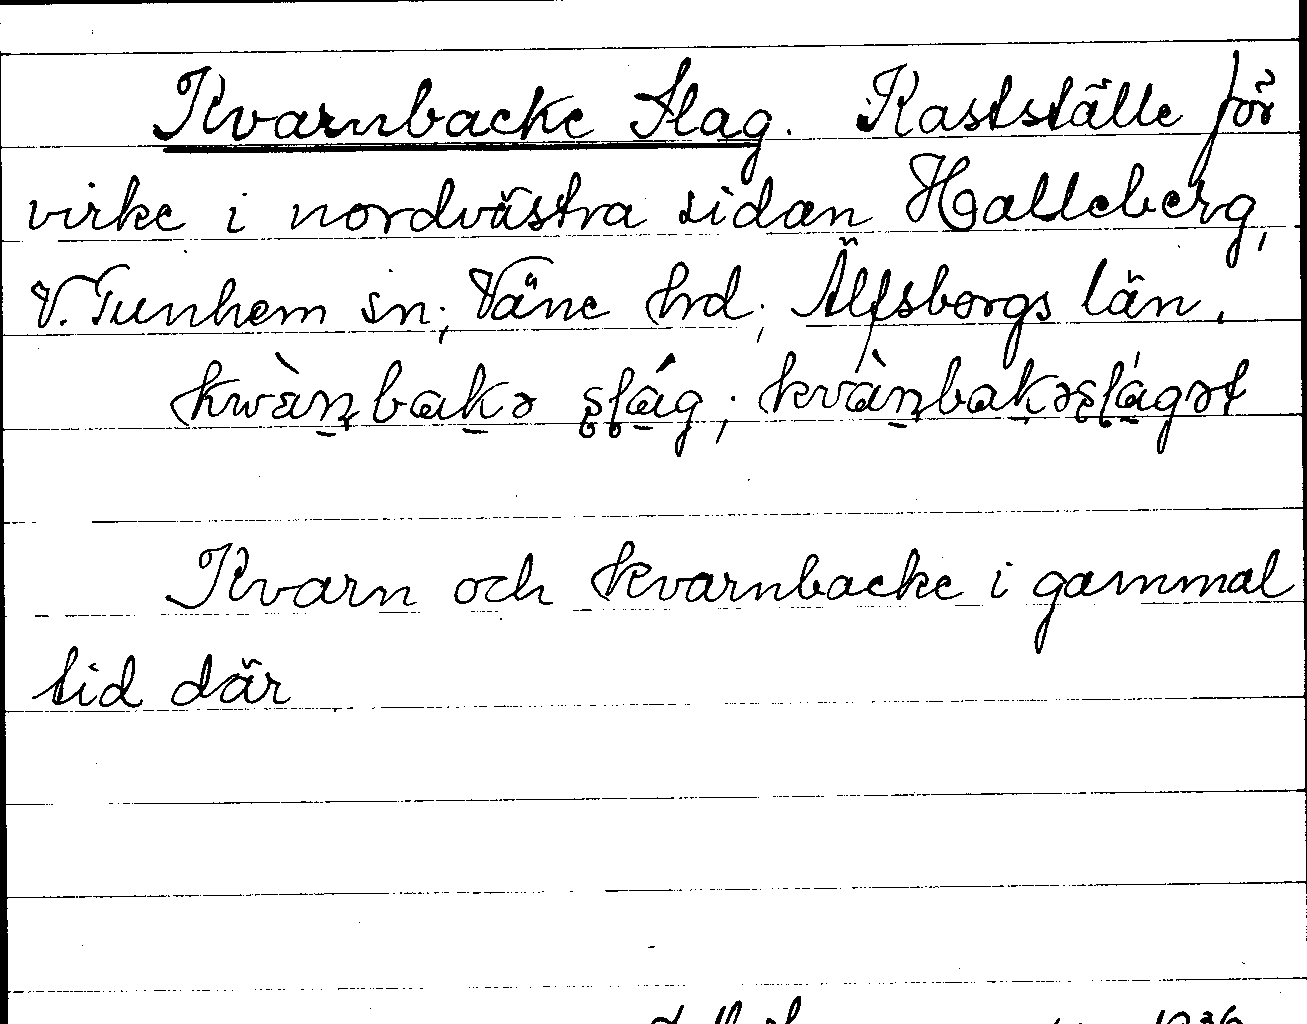 Kvarnbacke Slag. Kastställe för
virke i nordvästra sidan Halleberg,
V. Tunhem sn; Väne hd; Älfsborgs län.
Kvarn och kvarnbacke i gammal
tid där